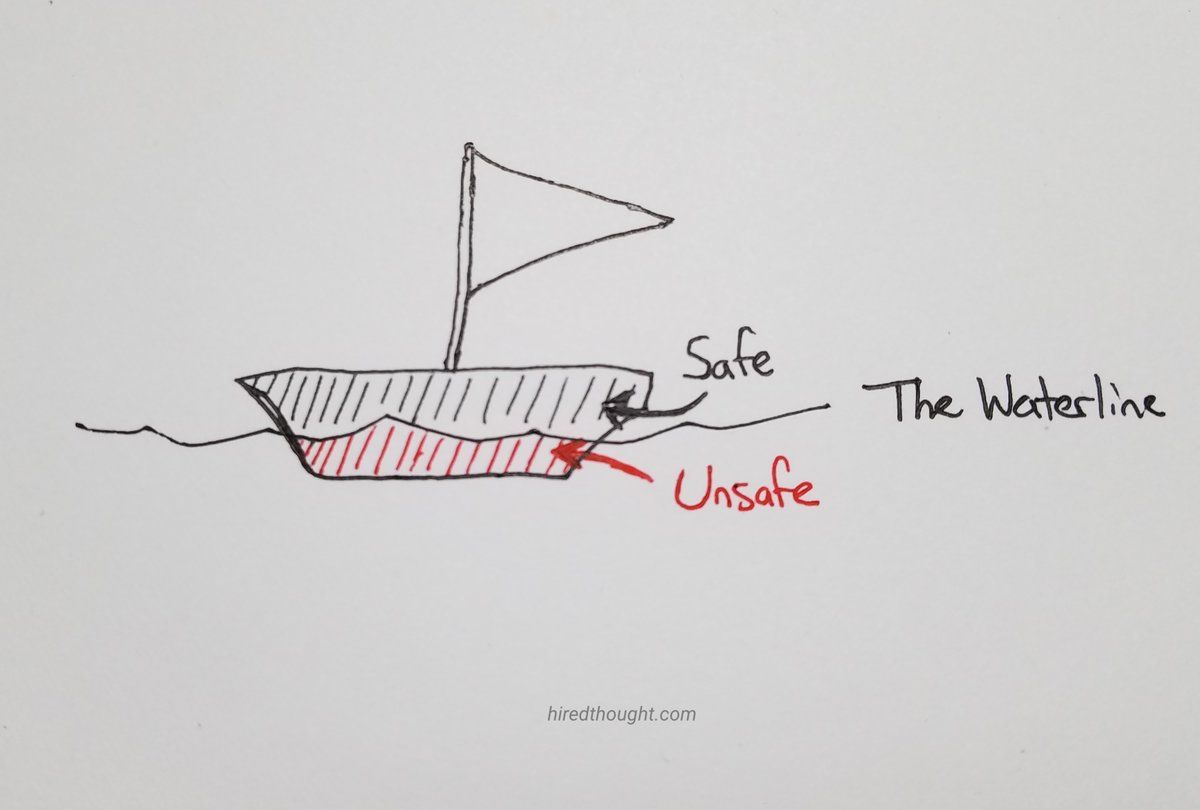 Safe
The Waterline
Unsafe
hiredthought.com